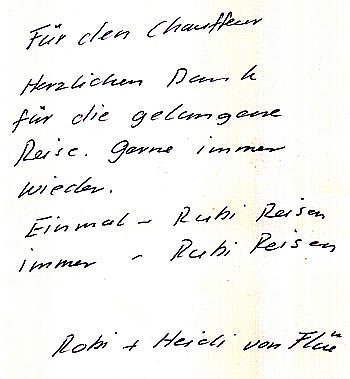 Für den Chauffeur
Herzlichen Dank
für die gelungene
Reise. Gerne immer
wieder.
Einmal - Rubi Reisen
immer - Rubi Reisen
Robi + Heidi von Flüe